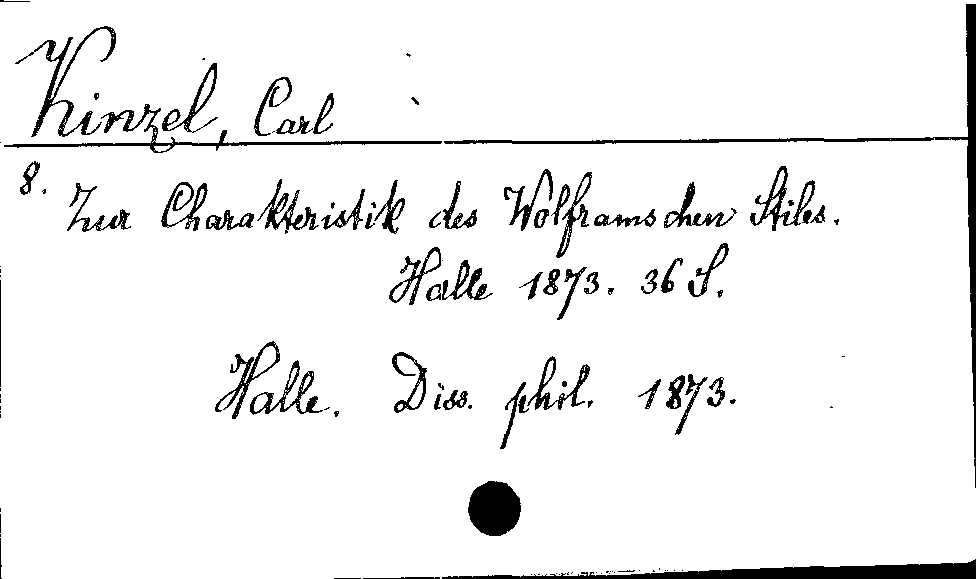 Kinzel, Carl
8.
Zur Charakteristik des Wolframschen Stiles.
Halle 1873. 36 S.
Halle. Diss. phil. 1873.